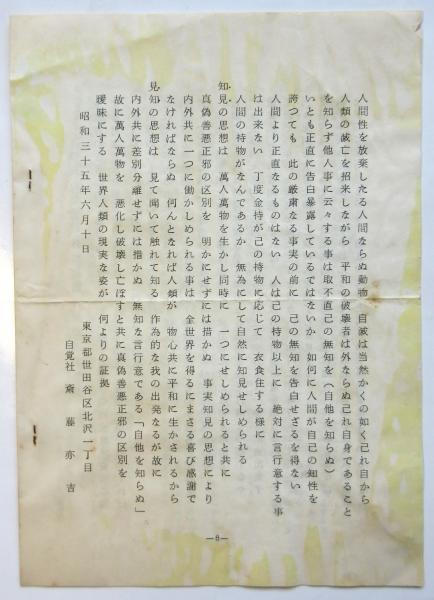 人間性を放棄したる人間ならぬ動物　自滅は当然かくの如く己れ自から
人類の滅亡を招来しながら　平和の破壊者は外ならぬ己れ自身であること
を知らず他人事に云々する事は取不直己の無知を（自他を知らぬ）
いとも正直に告白暴露しているではないか　如何に人間が自己の知性を
誇つても　此の厳粛なる事実の前に　己の無知を告白せざるを得ない
人間より正直なるものはない　人は己の持物以上に　絶対に言行意する事
は出来ない　丁度金持が己の持物に応じて　衣食住する様に
人間の持物がなんであるか　無為にして自然に知見せしめられる
知見の思想は　萬人萬物を生かし同時に　一つにせしめられると共に
真偽善悪正邪の区別を　明かにせずには措かぬ　事実知見の思想により
内外共に一つに働かしめられる事は　全世界を得るにまさる喜び感謝で
なければならぬ　何んとなれば人類が　物心共に平和に生かされるから
見知の思想は　見て聞いて触れて知る　作為的な我の出発なるが故に
内外共に差別分離せずには措かぬ　無知な言行意である「自他を知らぬ」
故に萬人萬物を　悪化し破壊し亡ぼすと共に真偽善悪正邪の区別を
曖昧にする　世界人類の現実な姿が　何よりの証拠
昭和三十五年六月十日
東京都世田谷区北沢一丁目
自覚社　斎藤亦吉
—8—